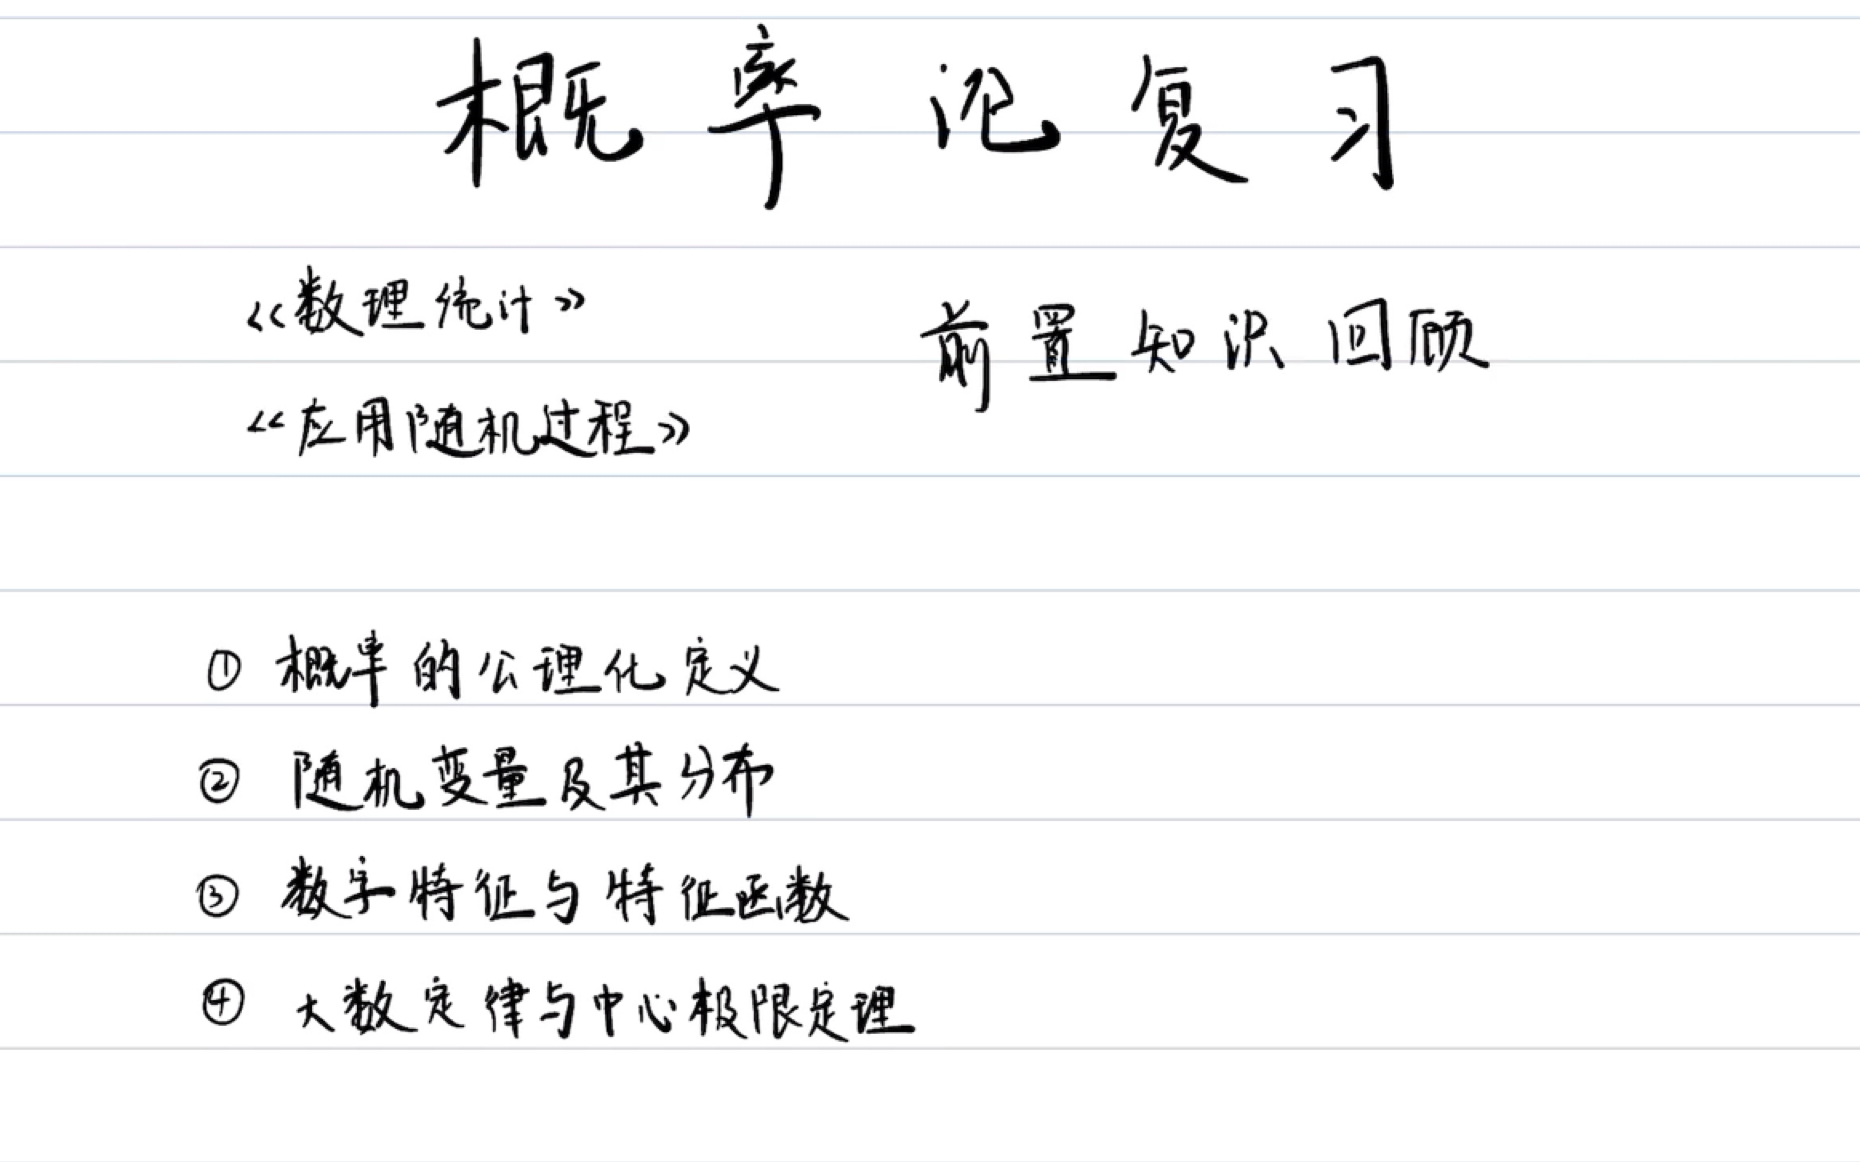 概率论复习
《数理统计》
前置知识回顾
《应用随机过程》
① 概率的公理化定义
② 随机变量及其分布
③ 数字特征与特征函数
④ 大数定律与中心极限定理